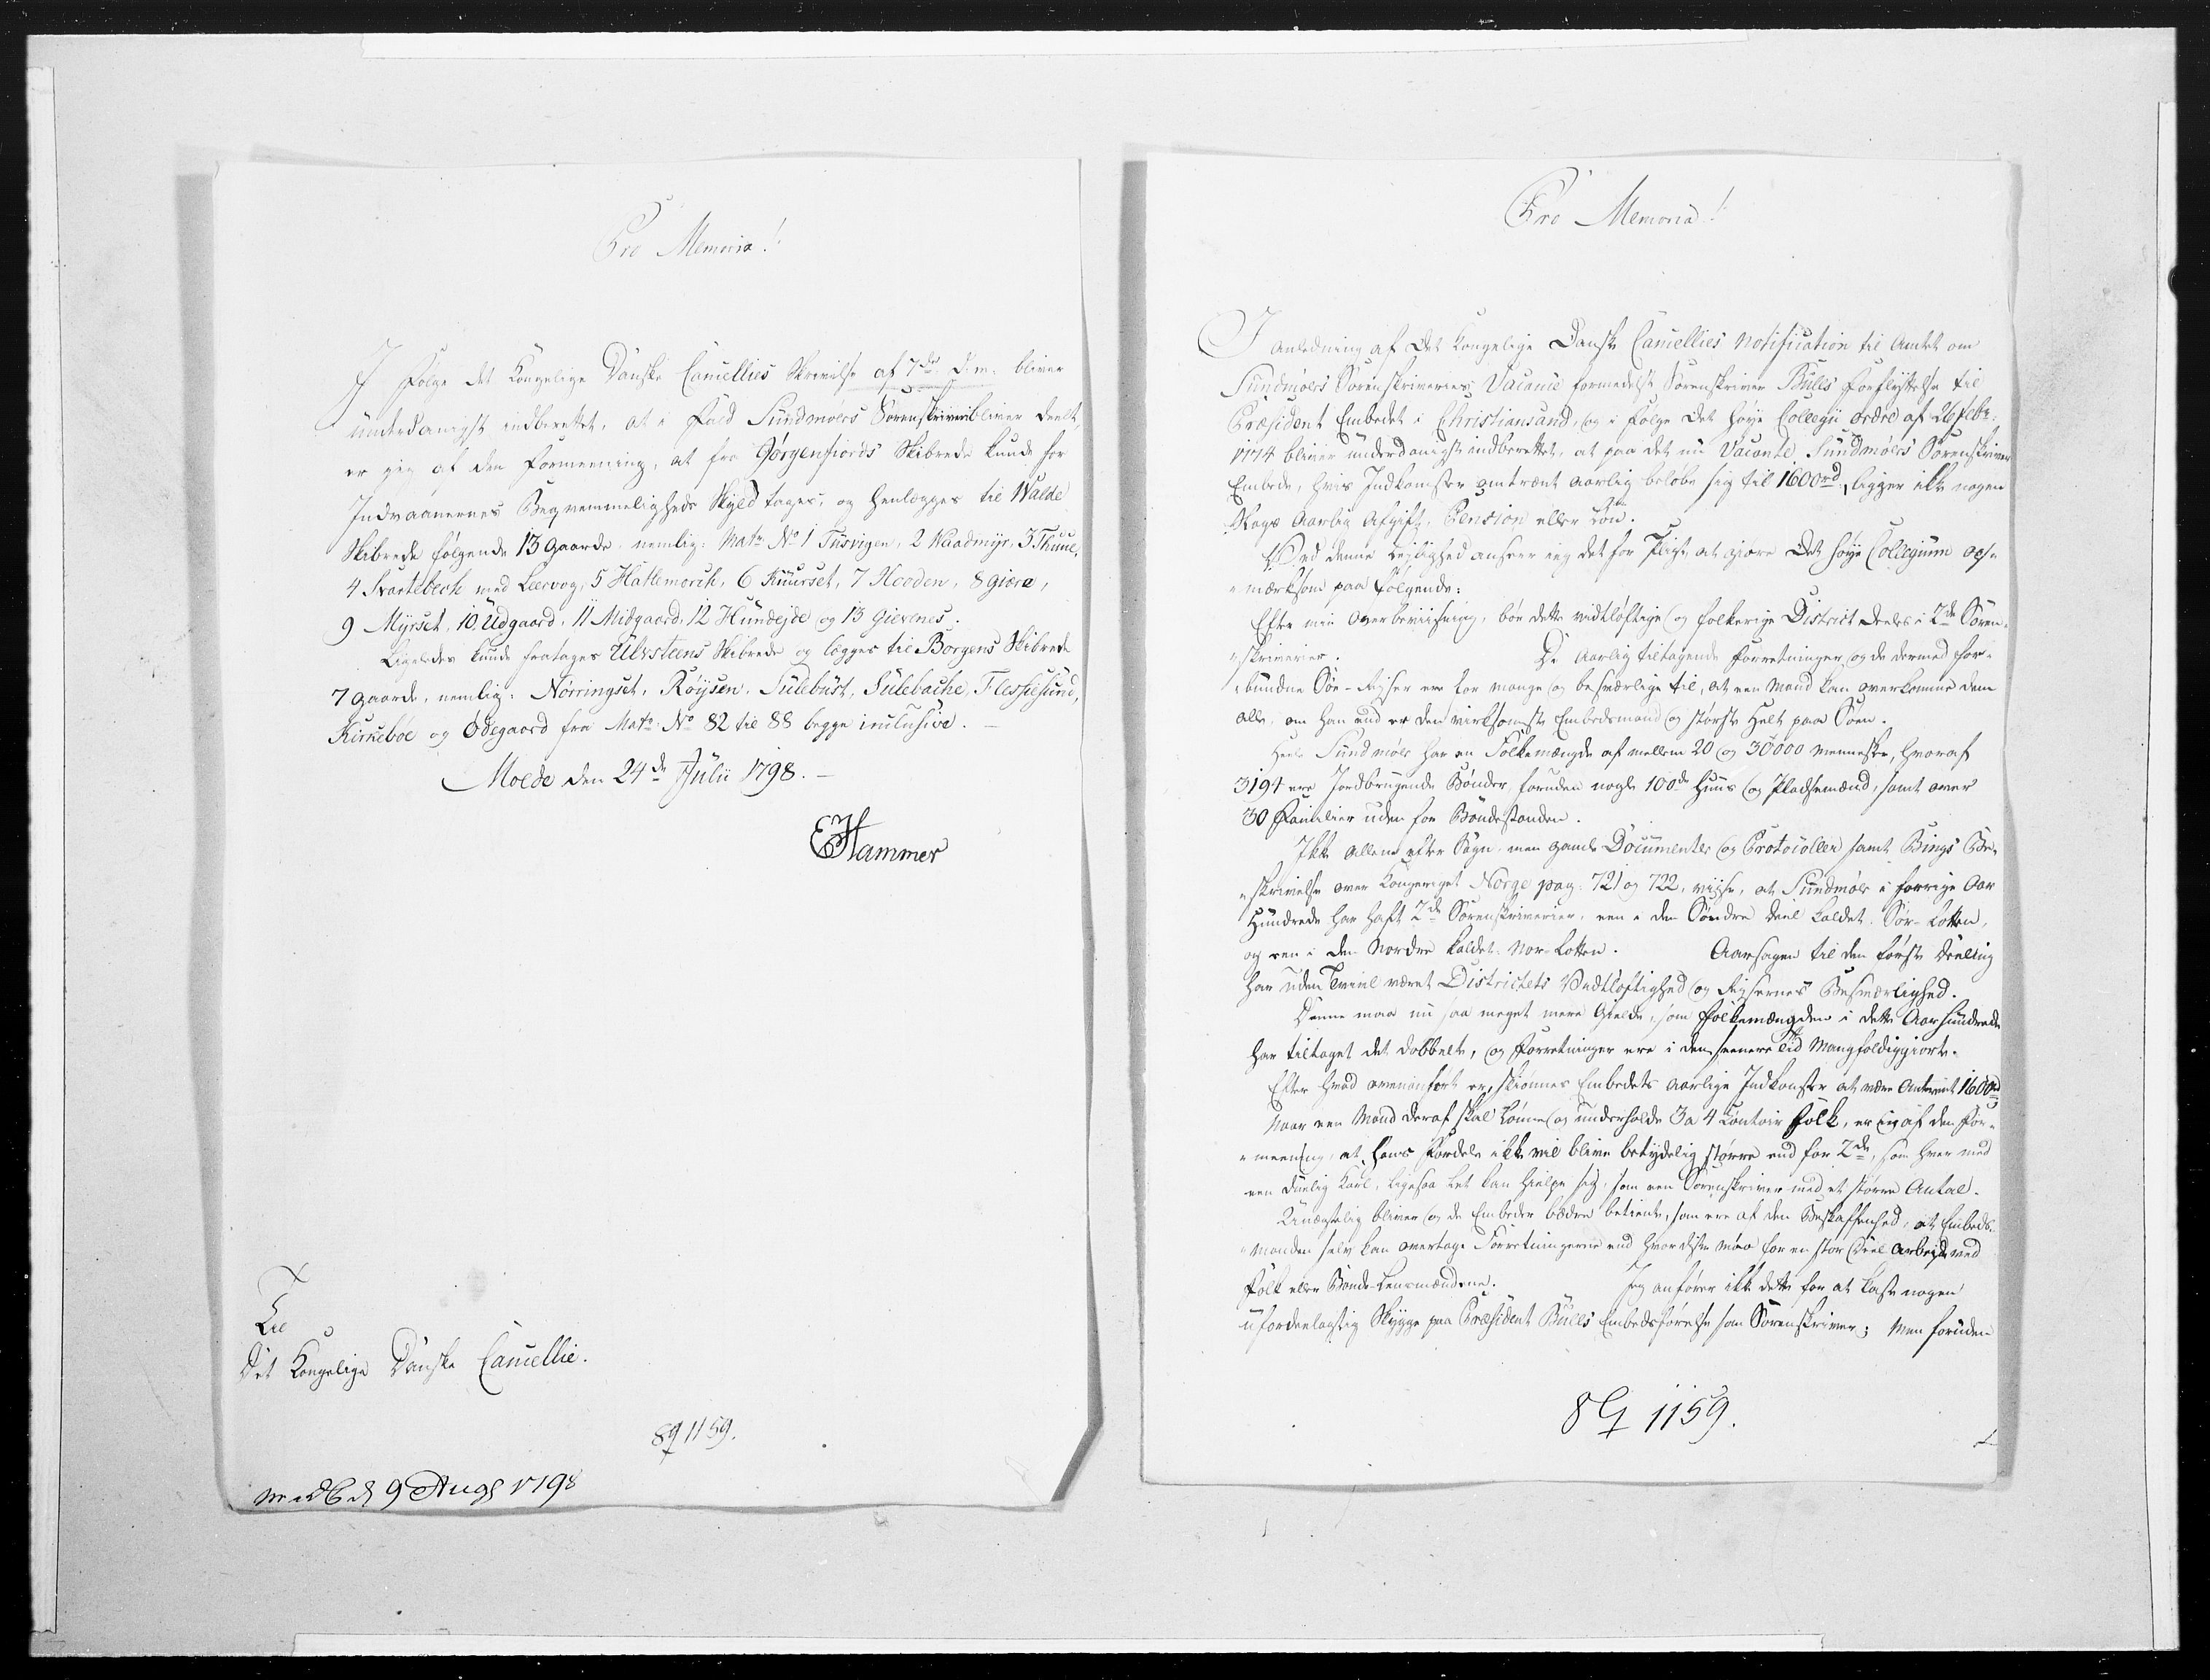 Pro Memoria!
I Følge det Kongelige Danske Cancellies Skrivelse af 7de d. m. bliver
underdanigst indberettet, at i Fald Sundmøers Sorenskriveri bliver deelt,
er jeg af den Formeening, at fra Jørgenfiords Skibrede kunde for
Indvaanernes Beqvemmeligheds Skyld tages, og henlægges til Walde
Skibrede følgende 13 Gaarde, nemlig: Matr. No 1 Tusvigen, 2 Waadmyr, 3 Thuue,
4 Svartebech med Leervog, 5 Hatlemarck, 6 Kuurset, 7 Heoden, 8 Giære,
9 Myrset, 10 Udgaard, 11 Midgaard, 12 Hundejde og 13 Gievenes.
Ligeledes kunde fratages Ulvsteens Skibrede og lægges til Borgens Skibrede
7 Gaarde, nemlig: Nørringset, Røysen, Sulebust, Sulebache, Flessesund,
Kirkebøe og Ødegaard fra Matr. No 82 til 88 begge inclusive.
Molde den 24de Julii 1798.
EHammer
Til
Det Kongelige Danske Cancellie.
89 1159.
9 Aug 1798
Pro Memoria!
I Anledning af Det Kongelige Danske Cancellies Notification til Amtet om
Sundmøers Sorenskriveries Vacance formedelst Sorenskriver Bulls Forflyttelse til
Præsident Embedet i Christiansand, og i Følge Det høye Collegii Ordre af 26 Febr.
1774 bliver underdanigst indberettet, at paa det nu Vacante Sundmøers Sorenskriver
Embede, hvis Indkomster omtrent aarlig beløbe sig til 1600rd, ligger ikke nogen
Slags Aarlig Afgift, Pension eller Løn.
Ved denne Leylighed anseer jeg det for Pligt, at giøre Det høye Collegium op-
mærksom paa følgende:
Efter min Overbeviisning, bør dette vidtløftige og folkerige District deeles i 2de Soren-
skriverier. De aarlig tiltagende Forretninger og de dermed for-
bundne Søe-Reyser ere for mange og besværlige til, at een Mand kan overkomme dem
alle, om han end er den virksomste Embedsmand og største Helt paa Søen.
Heele Sundmøer har en Folkemængde af mellem 20 og 30000 Mennesker, hvoraf
3194 ere Jordbrugende Bønder, foruden nogle 100de Huus og Pladsemænd, samt over
30 Familier uden for Bondestanden.
Ikke allene efter Sagn, men gamle Documenter og Protocoller samt Bings Be-
skrivelse over Kongeriget Norge pag. 721 og 722, viise, at Sundmøer i forrige Aar
Hundrede har haft 2de Sorenskriverier, een i den Søndre Deel kaldet Sør-Lotten,
og een i den Nordre kaldet Nor-Lotten. Aarsagen til den første Deeling
har uden Tvivl været Districtets Vidtløftighed og Reysernes Besværlighed.
Denne maa nu saa meget mere Gielde, som Folkemængden i dette Aarhundrede
har tiltaget det dobbelte, og Forretninger ere i den seenere Tid Mangfoldiggiort.
Efter hvad ovenanført er, skiønnes Embedets aarlige Indkomster at være Omtrent 1600rd
Naar een Mand deraf skal lønne og underholde 3 a 4 Contoir Folk, er jeg af den For-
meening, at hans Fordele ikke vil blive betydelig større end for 2de, som hver med
een duelig Karl, ligesaa let kan hielpe sig, som een Sorenskriver med et større Antal.
Unægtelig bliver og de Embeder bedre betiente, som ere af den Beskaffenhed, at Embeds-
manden selv kan overtage Forretningerne end hvor dette maa for en stor Deel arbejde ved
Folk eller Bonde-Lensmændene. Jeg anfører ikke dette for at kaste nogen
ufordeelagtig Skygge paa Præsident Bulls Embedsførelse som Sorenskriver; Men foruden
89 1159.